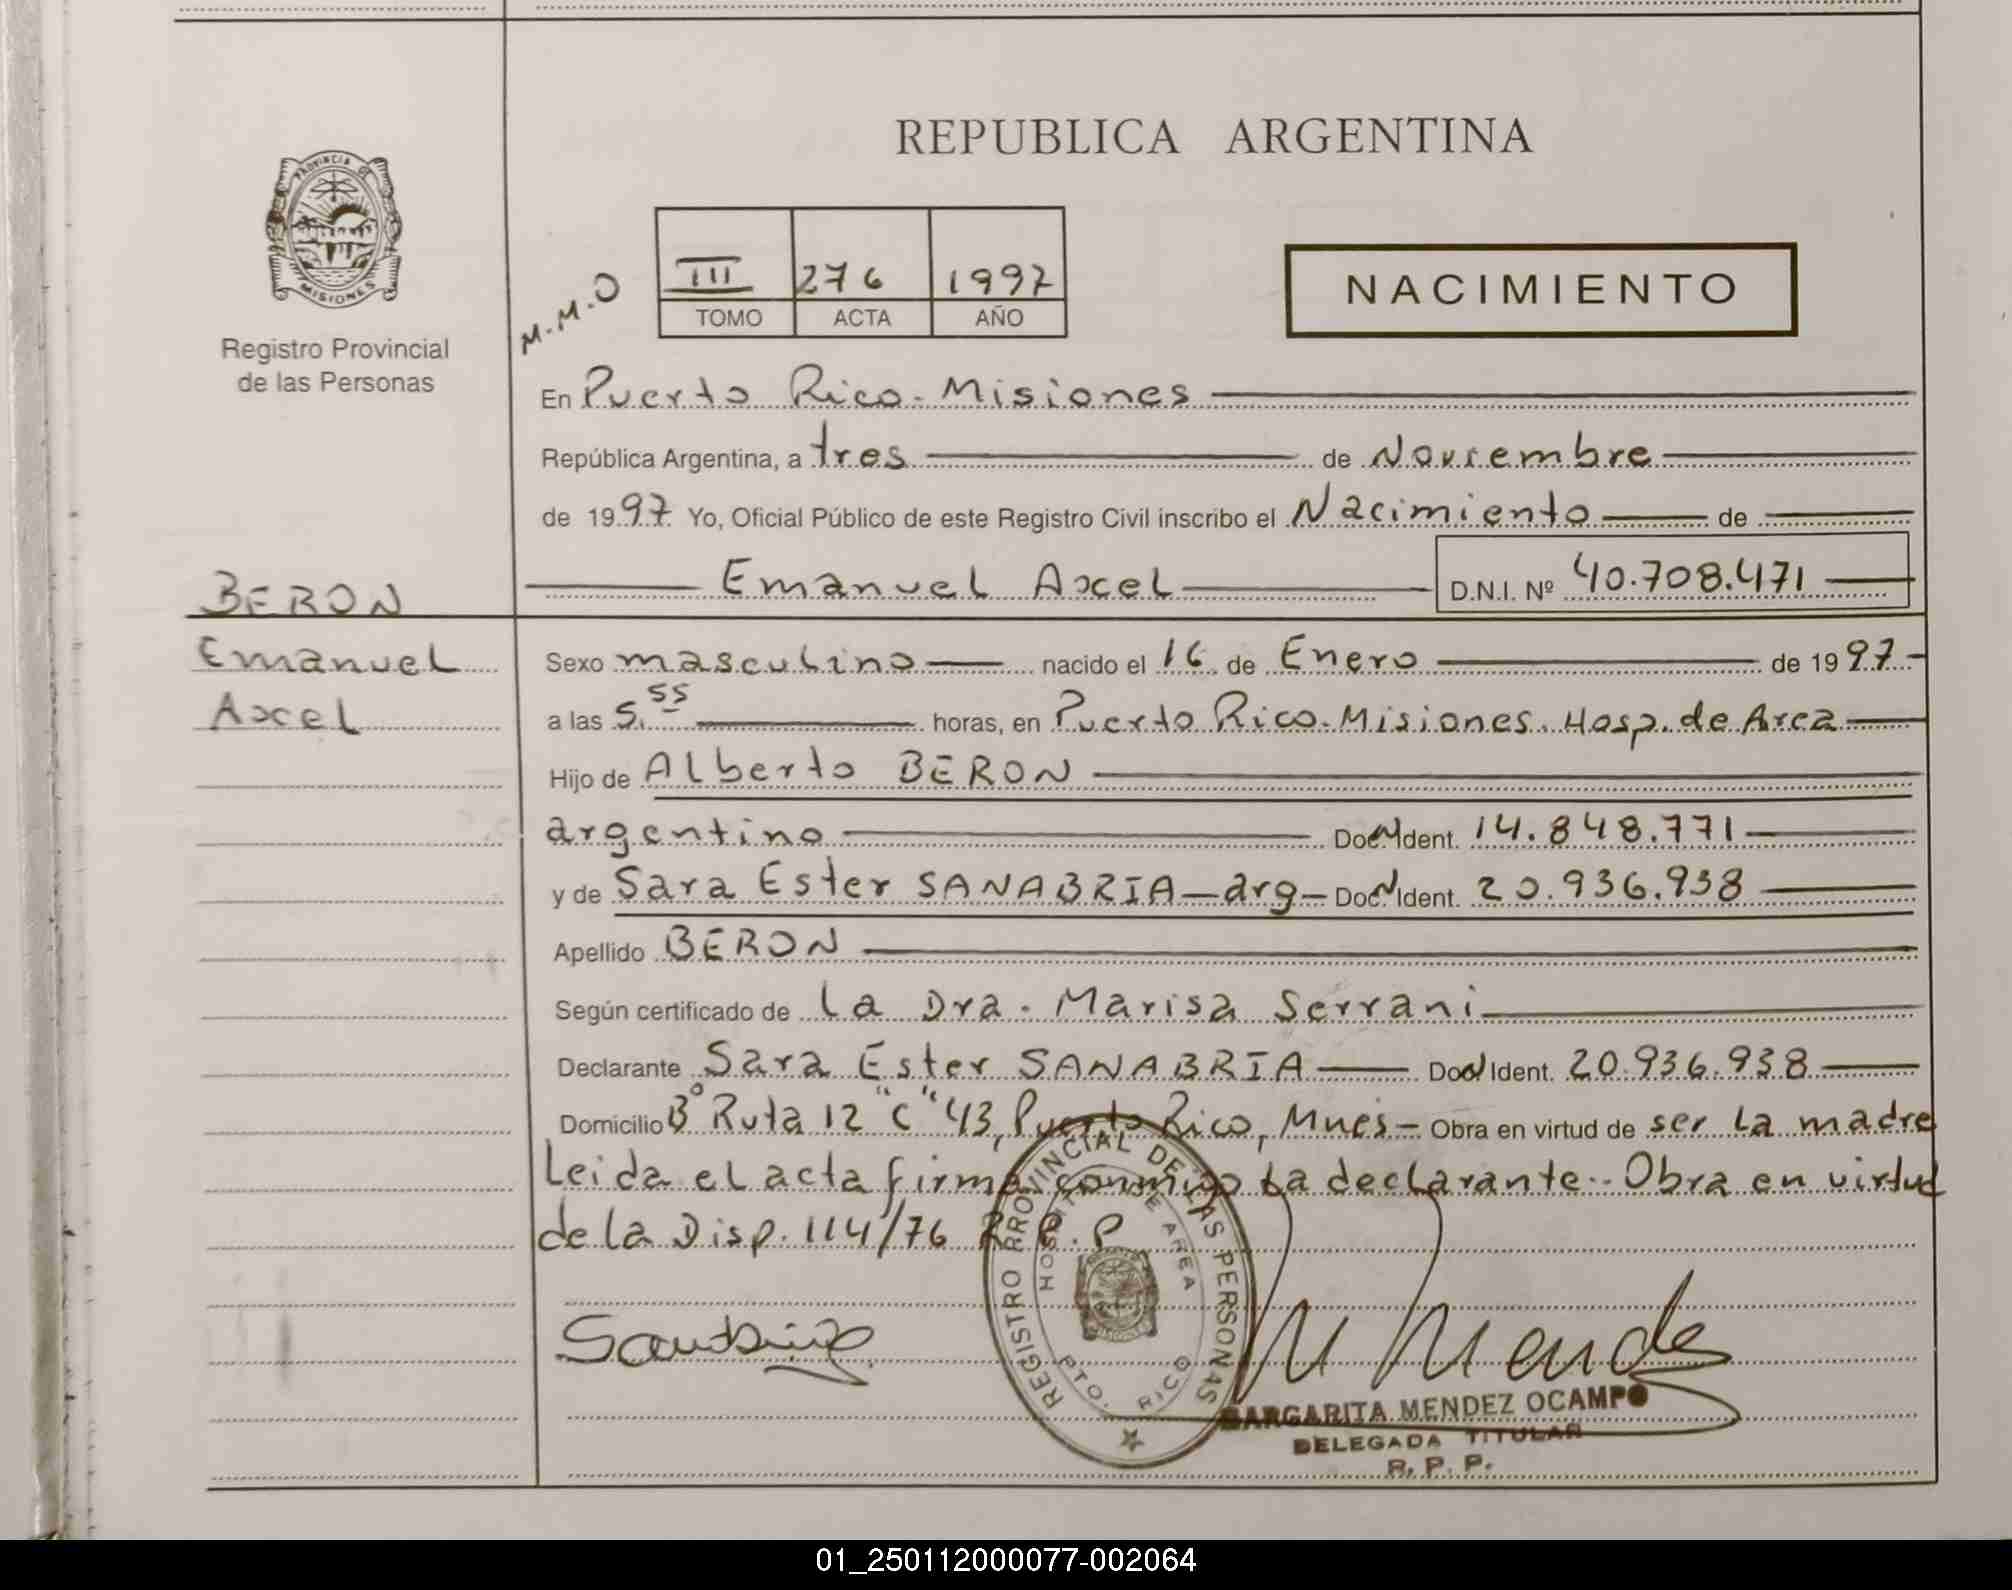 REPUBLICA ARGENTINA
PROVINCIA DE
MISIONES
Registro Provincial
de las Personas
M.M.O
III 276 1997
TOMO ACTA AÑO
NACIMIENTO
En Puerto Rico - Misiones
República Argentina, a tres de Noviembre
de 1997 Yo, Oficial Público de este Registro Civil inscribo el Nacimiento de
Emanuel Axcel D.N.I. Nº 40.708.471
BERON
Emanuel
Axcel
Sexo masculino nacido el 16 de Enero de 1997
a las 5.55 horas, en Puerto Rico - Misiones. Hosp. de Area
Hijo de Alberto BERON
argentino Doc N Ident. 14.848.771
y de Sara Ester SANABRIA - arg - Doc N Ident. 20.936.938
Apellido BERON
Según certificado de La Dra. Marisa Serrani
Declarante Sara Ester SANABRIA Doc N Ident. 20.936.938
Domicilio Bº Ruta 12 "C" 43, Puerto Rico, Mnes - Obra en virtud de ser la madre
Leida el acta firma conmigo la declarante.- Obra en virtud
de la Disp. 114/76 R.P.P
REGISTRO PROVINCIAL DE LAS PERSONAS
HOSPITAL DE AREA
PTO. RICO
M Mendez
MARGARITA MENDEZ OCAMPO
DELEGADA TITULAR
R. P. P.
01_250112000077-002064